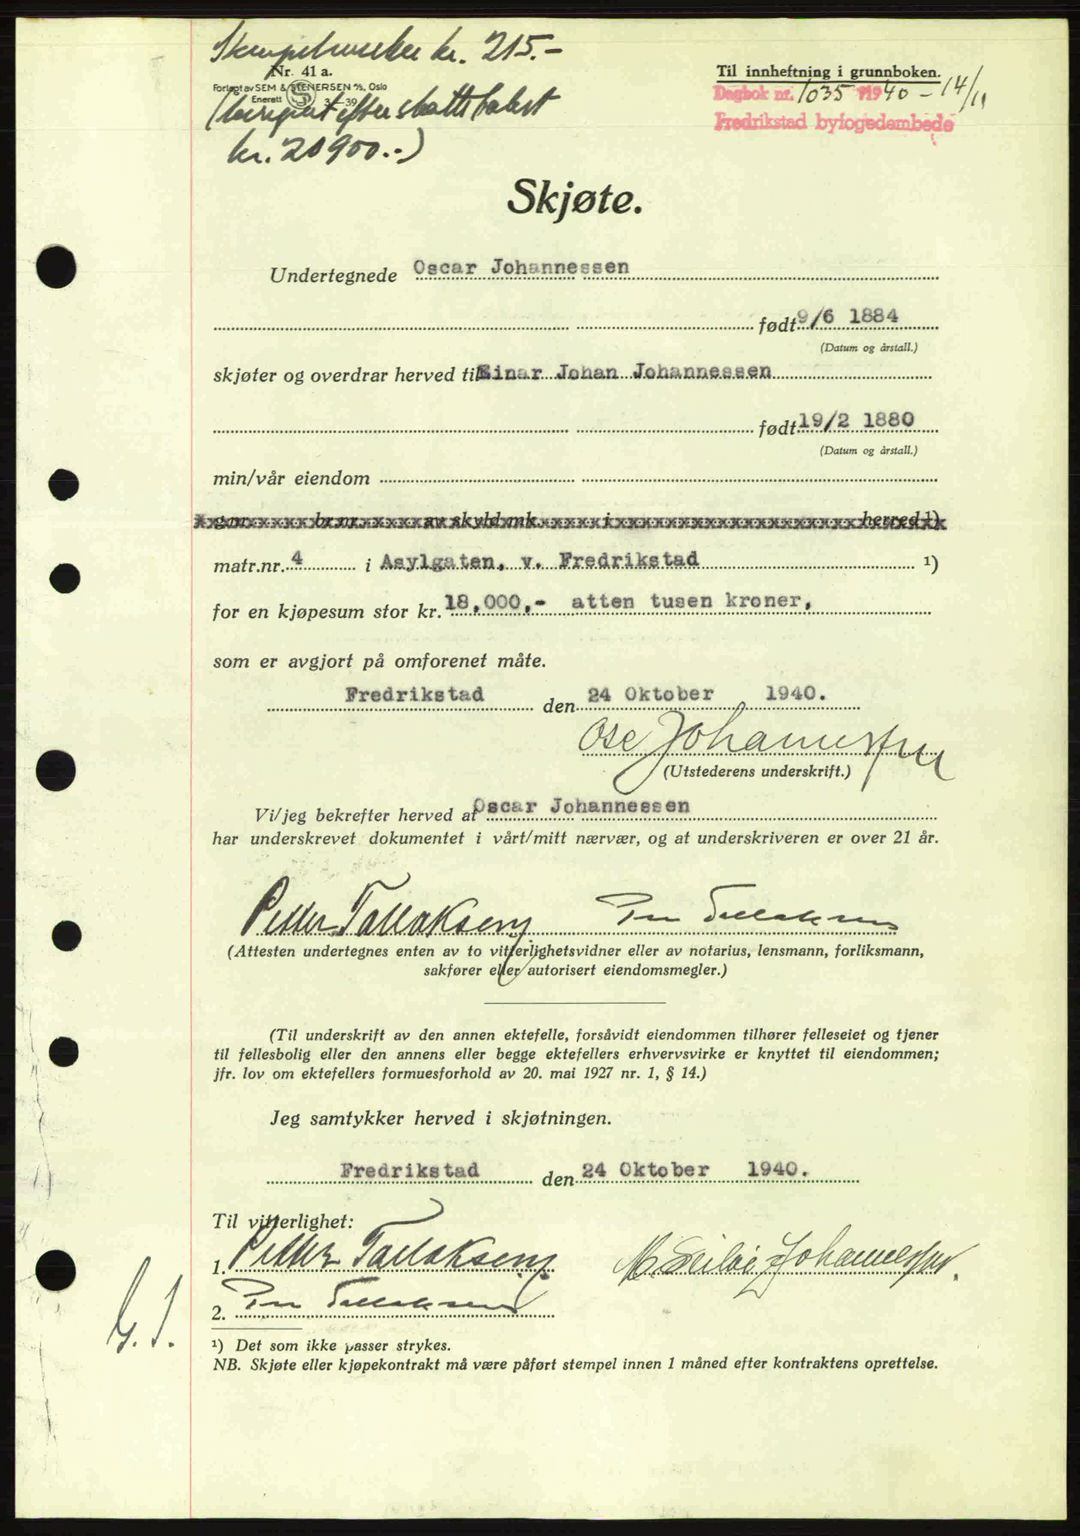 Stempelmerker kr. 215.-
Nr. 41 a.
Forlagt av SEM & STENERSEN A/S, Oslo
Enerett S 3-39
(beregnet efter skattetakst
kr. 20900.-)
Til innheftning i grunnboken.
Dagbok nr. 1035 1940 - 14/11
Fredrikstad byfogedembede
Skjøte.
Undertegnede Oscar Johannessen
født 9/6 1884
(Datum og årstall.)
skjøter og overdrar herved til Einar Johan Johannessen
født 19/2 1880
(Datum og årstall.)
min/vår eiendom
g.nr. br.nr. av skyld mk. i herred ¹)
matr.nr. 4 i Asylgaten, v. Fredrikstad ¹)
for en kjøpesum stor kr. 18,000,- atten tusen kroner,
som er avgjort på omforenet måte.
Fredrikstad den 24 Oktober 1940.
Osc Johannessen
(Utstederens underskrift.)
Vi/jeg bekrefter herved at Oscar Johannessen
har underskrevet dokumentet i vårt/mitt nærvær, og at underskriveren er over 21 år.
Petter Tallaksen Per Tallaksen
(Attesten undertegnes enten av to vitterlighetsvidner eller av notarius, lensmann, forliksmann,
sakfører eller autorisert eiendomsmegler.)
(Til underskrift av den annen ektefelle, forsåvidt eiendommen tilhører felleseiet og tjener
til fellesbolig eller den annens eller begge ektefellers erhvervsvirke er knyttet til eiendommen;
jfr. lov om ektefellers formuesforhold av 20. mai 1927 nr. 1, § 14.)
Jeg samtykker herved i skjøtningen.
Fredrikstad den 24 Oktober 1940.
Til vitterlighet:
1. Petter Tallaksen Johannessen.
2. Per Tallaksen
G. J.
¹) Det som ikke passer strykes.
NB. Skjøte eller kjøpekontrakt må være påført stempel innen 1 måned efter kontraktens oprettelse.